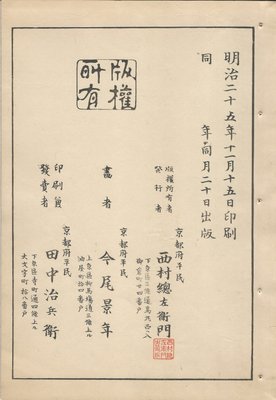 明治二十五年十一月十五日印刷
同年同月二十日出版
版權所有
版權所有者
發行者
京都府平民
西村總左衛門
畫者
京都府平民
今尾景年
上京區柳馬場通三條上ル
油屋町廿四番戸
印刷兼
發賣者
京都府平民
田中治兵衛
下京區寺町通四條上ル
大文字町十八番戸